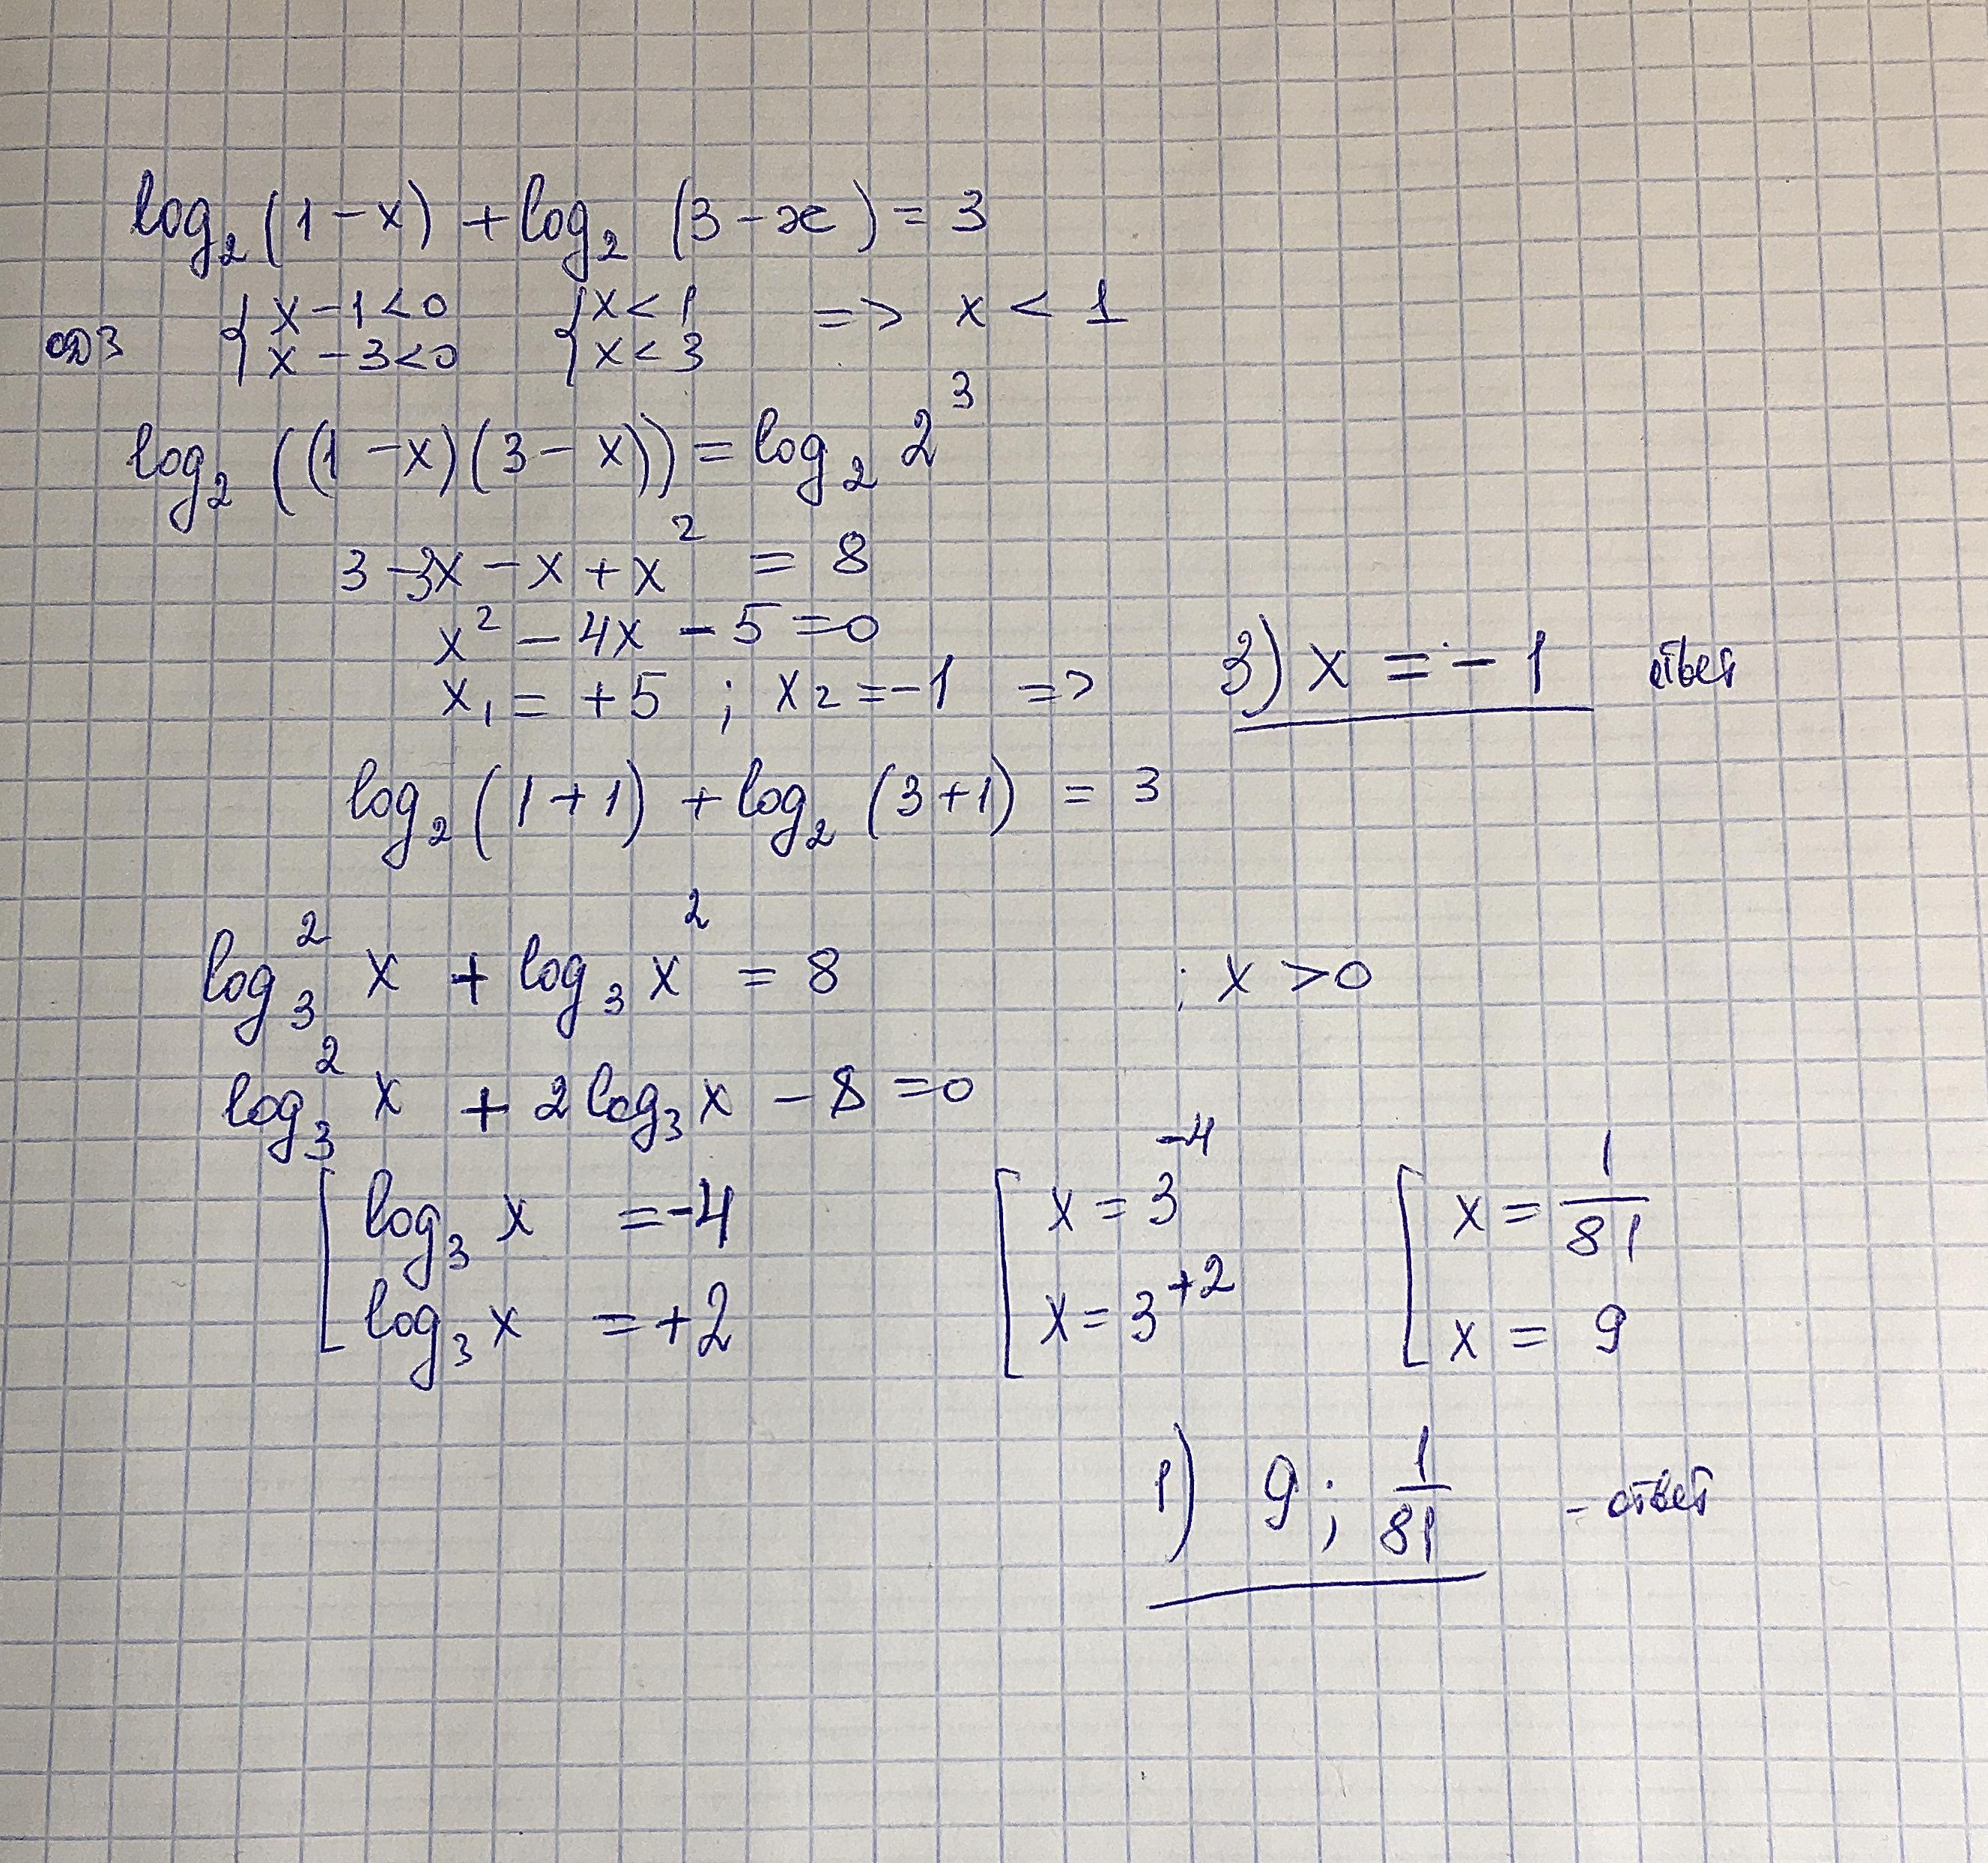 log₂(1-x) + log₂ (3-x) = 3
ОДЗ { x-1<0 { x<1 => x < 1
{ x-3<0 { x<3
log₂ ((1-x)(3-x)) = log₂ 2³
3-3x-x+x² = 8
x²-4x-5=0
x₁=+5 ; x₂=-1 => 3) x=-1 ответ
log₂(1+1) + log₂ (3+1) = 3
log₃² x + log₃ x² = 8 ; x>0
log₃² x + 2log₃x - 8 =0
[ log₃ x =-4 [ x=3⁻⁴ [ x= 1/81
[ log₃ x =+2 [ x=3⁺² [ x = 9
1) 9; 1/81 - ответ